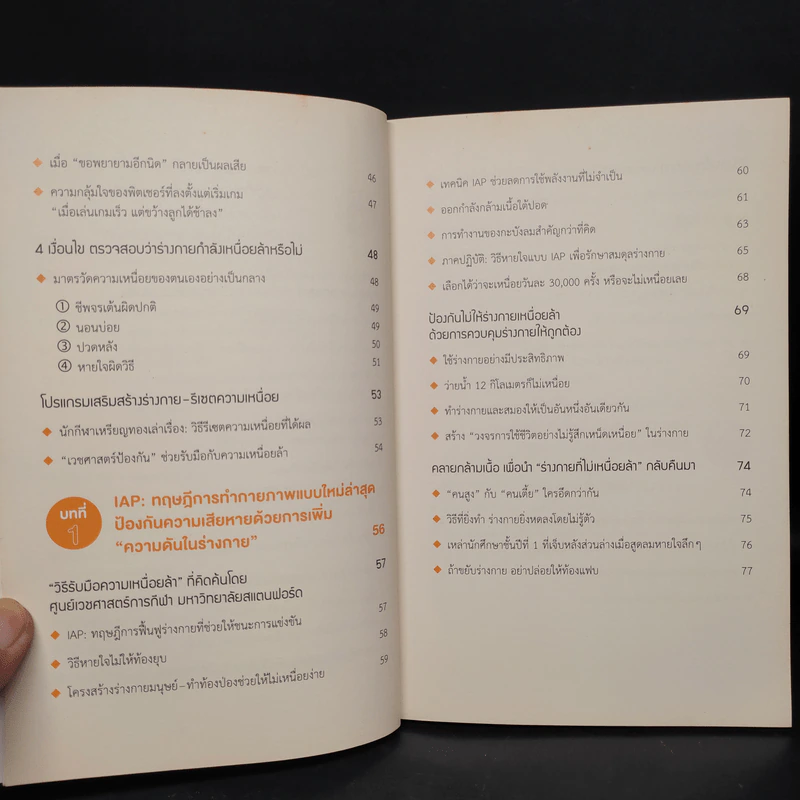 ◆ เมื่อ “ขอพยายามอีกนิด” กลายเป็นผลเสีย 46
◆ ความกลุ้มใจของพิตเชอร์ที่ลงตั้งแต่เริ่มเกม 47
“เมื่อเล่นเกมเร็ว แต่ขว้างลูกได้ช้าลง”
4 เงื่อนไข ตรวจสอบว่าร่างกายกำลังเหนื่อยล้าหรือไม่ 48
◆ มาตรวัดความเหนื่อยของตนเองอย่างเป็นกลาง 48
① ชีพจรเต้นผิดปกติ 49
② นอนบ่อย 49
③ ปวดหลัง 50
④ หายใจผิดวิธี 51
โปรแกรมเสริมสร้างร่างกาย–รีเซตความเหนื่อย 53
◆ นักกีฬาเหรียญทองเล่าเรื่อง: วิธีรีเซตความเหนื่อยที่ได้ผล 53
◆ “เวชศาสตร์ป้องกัน” ช่วยรับมือกับความเหนื่อยล้า 54
บทที่ 1
IAP: ทฤษฎีการทำกายภาพแบบใหม่ล่าสุด
ป้องกันความเสียหายด้วยการเพิ่ม
“ความดันในร่างกาย” 56
“วิธีรับมือความเหนื่อยล้า” ที่คิดค้นโดย 57
ศูนย์เวชศาสตร์การกีฬา มหาวิทยาลัยสแตนฟอร์ด
◆ IAP: ทฤษฎีการฟื้นฟูร่างกายที่ช่วยให้ชนะการแข่งขัน 57
◆ วิธีหายใจไม่ให้ท้องยุบ 58
◆ โครงสร้างร่างกายมนุษย์–ทำท้องป่องช่วยให้ไม่เหนื่อยง่าย 59
◆ เทคนิค IAP ช่วยลดการใช้พลังงานที่ไม่จำเป็น 60
◆ ออกกำลังกล้ามเนื้อใต้ปอด 61
◆ การทำงานของกะบังลมสำคัญกว่าที่คิด 63
◆ ภาคปฏิบัติ: วิธีหายใจแบบ IAP เพื่อรักษาสมดุลร่างกาย 65
◆ เลือกได้ว่าจะเหนื่อยวันละ 30,000 ครั้ง หรือจะไม่เหนื่อยเลย 68
ป้องกันไม่ให้ร่างกายเหนื่อยล้า 69
ด้วยการควบคุมร่างกายให้ถูกต้อง
◆ ใช้ร่างกายอย่างมีประสิทธิภาพ 69
◆ ว่ายน้ำ 12 กิโลเมตรก็ไม่เหนื่อย 70
◆ ทำร่างกายและสมองให้เป็นอันหนึ่งอันเดียวกัน 71
◆ สร้าง “วงจรการใช้ชีวิตอย่างไม่รู้สึกเหน็ดเหนื่อย” ในร่างกาย 72
คลายกล้ามเนื้อ เพื่อนำ “ร่างกายที่ไม่เหนื่อยล้า” กลับคืนมา 74
◆ “คนสูง” กับ “คนเตี้ย” ใครอึดกว่ากัน 74
◆ วิธีที่ยิ่งทำ ร่างกายยิ่งหดลงโดยไม่รู้ตัว 75
◆ เหล่านักศึกษาชั้นปีที่ 1 ที่เจ็บหลังส่วนล่างเมื่อสูดลมหายใจลึกๆ 76
◆ ถ้าขยับร่างกาย อย่าปล่อยให้ท้องแฟบ 77